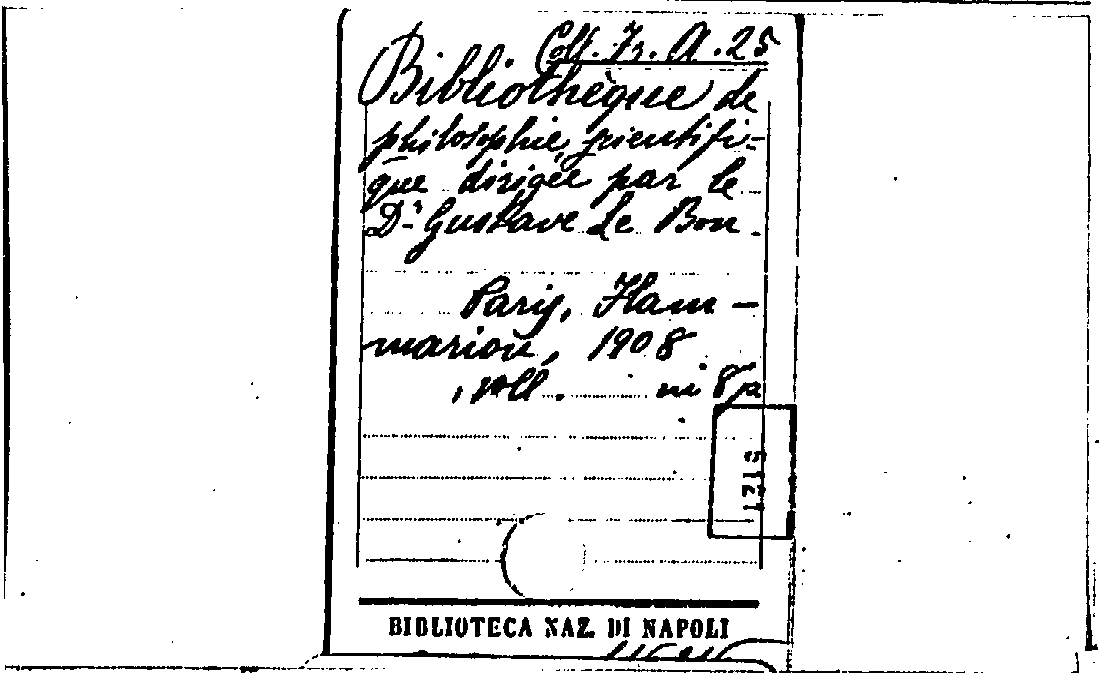 Coll. Fr. A. 25
Bibliothèque de
philosophie scientifi-
que dirigée par le
Dr Gustave Le Bon.
Paris, Flam-
marion, 1908
, voll. in 8°
BIBLIOTECA NAZ. DI NAPOLI